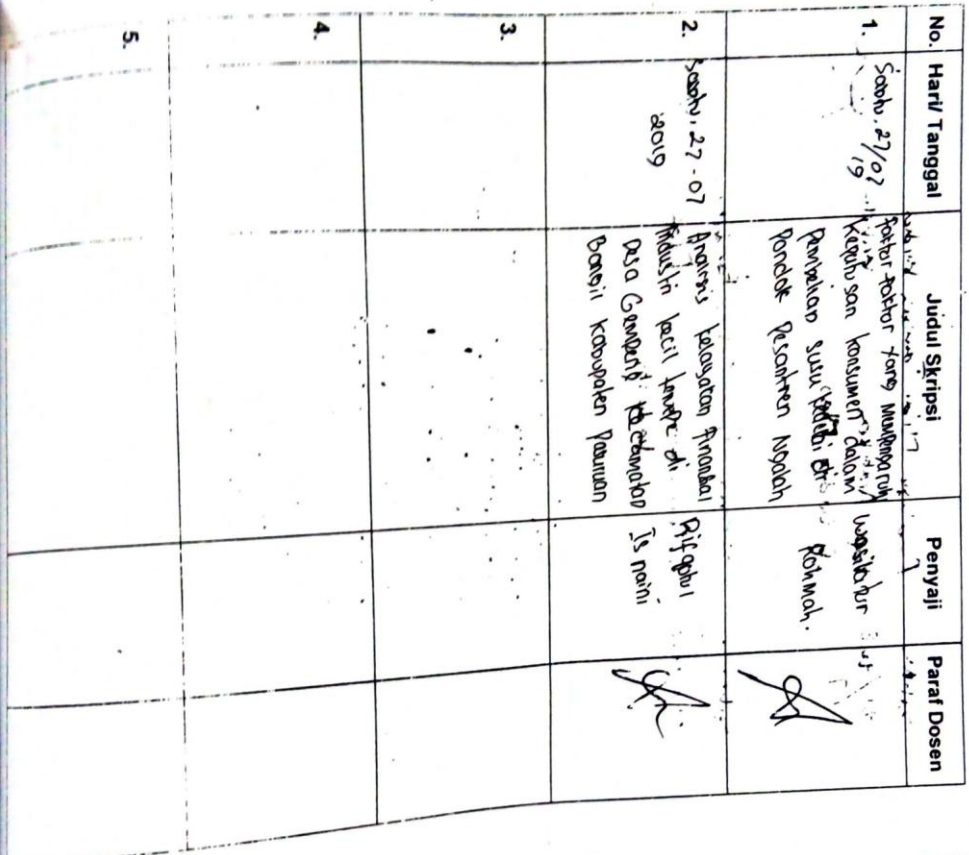 No. Hari/ Tanggal Judul Skripsi Penyaji Paraf Dosen
1. Sabtu, 27/07 19
Faktor-faktor yang Mempengaruhi
Keputusan konsumen dalam
Pembelian susu kedelai di
Pondok Pesantren Ngalah
Wasilatur
Rohmah.
2. Sabtu, 27-07
2019
Analisis kelayakan Finansial
Industri kecil tempe di
Desa Gempeng Kecamatan
Bangil Kabupaten Pasuruan
Rifqohul
Isnaini
3.
4.
5.